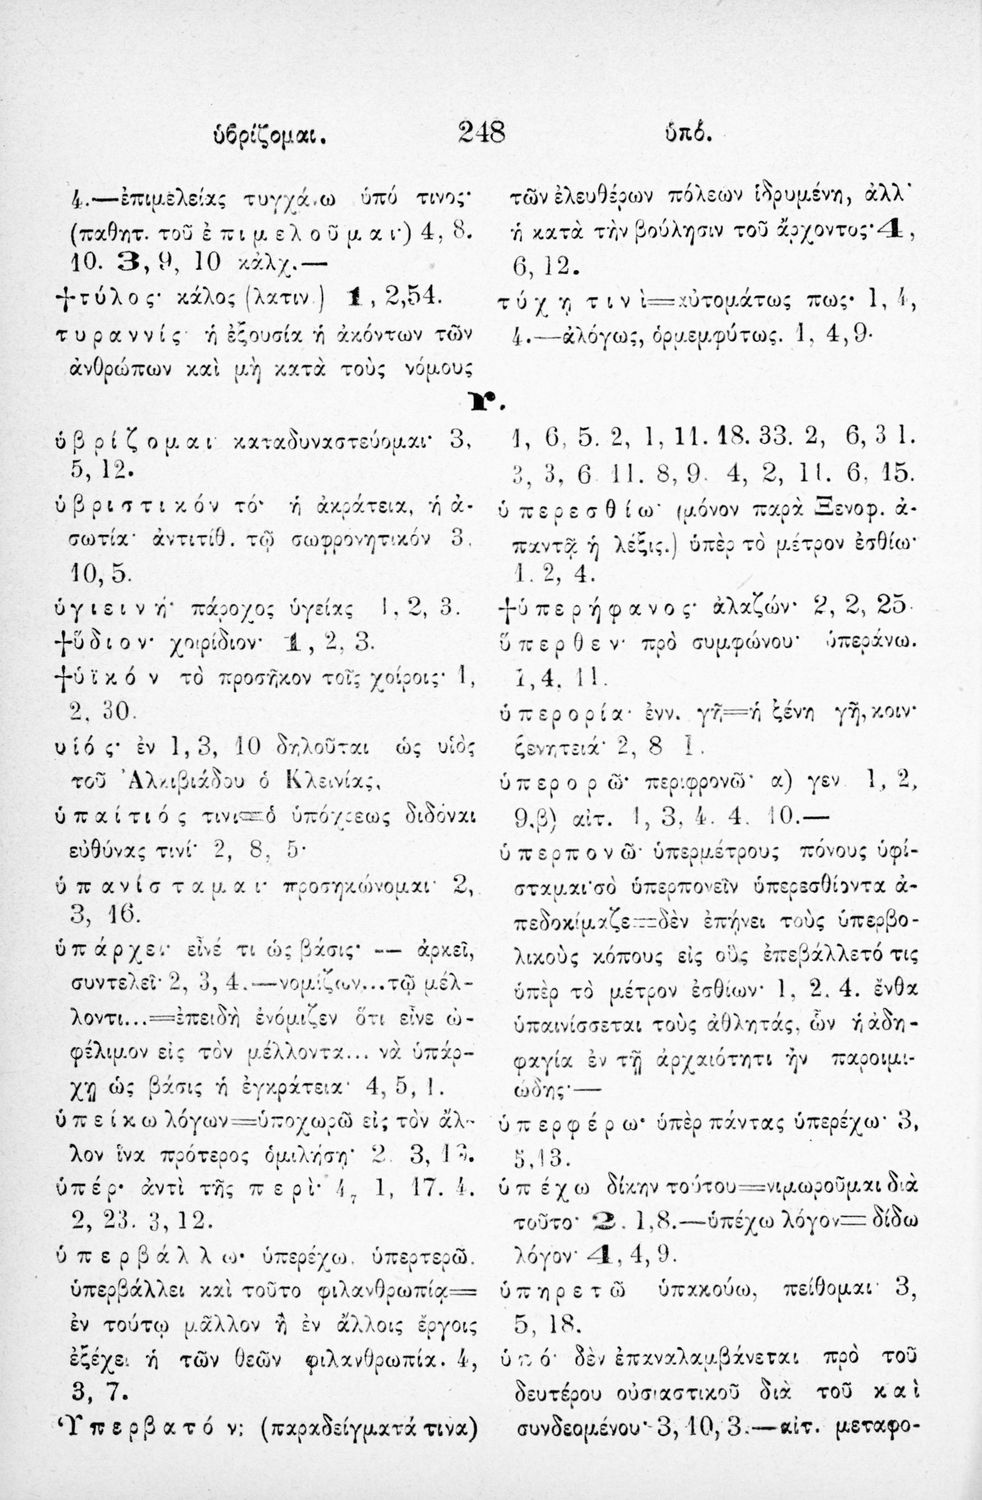 ὑβρίζομαι. 248 ὑπό.
4.—ἐπιμελείας τυγχάνω ὑπό τινος·
(παθητ. τοῦ ἐπιμελοῦμαι·) 4, 8.
10. 3, 9, 10 κἀλχ.—
†τύλος· κάλος (λατιν.) 1, 2,54.
τυραννίς· ἡ ἐξουσία ἡ ἀκόντων τῶν
ἀνθρώπων καὶ μὴ κατὰ τοὺς νόμους
τῶν ἐλευθέρων πόλεων ἱδρυμένη, ἀλλ᾽
ἡ κατὰ τὴν βούλησιν τοῦ ἄρχοντος· 4,
6, 12.
τύχῃ τινὶ=αὐτομάτως πως· 1, 4,
4.—ἀλόγως, ὁρμεμφύτως. 1, 4, 9·
Υ.
ὑβρίζομαι· καταδυναστεύομαι· 3,
5, 12.
ὑβριστικόν τό· ἡ ἀκράτεια, ἡ ἀ-
σωτία· ἀντιτίθ. τῷ σωφρονητικόν 3,
10, 5.
ὑγιεινή· πάροχος ὑγείας 1, 2, 3.
†ὕδιον· χοιρίδιον· 1, 2, 3.
†ὑϊκόν τὸ προσῆκον τοῖς χοίροις· 1,
2, 30.
υἱός· ἐν 1, 3, 10 δηλοῦται ὡς υἱὸς
τοῦ Ἀλκιβιάδου ὁ Κλεινίας,
ὑπαίτιός τινι=ὁ ὑπόχρεως διδόναι
εὐθύνας τινί· 2, 8, 5·
ὑπανίσταμαι· προσηκώνομαι· 2,
3, 16.
ὑπάρχει· εἶνέ τι ὡς βάσις· —— ἀρκεῖ,
συντελεῖ· 2, 3, 4.—νομίζων...τῷ μέλ-
λοντι...=ἐπειδὴ ἐνόμιζεν ὅτι εἶνε ὠ-
φέλιμον εἰς τὸν μέλλοντα... νὰ ὑπάρ-
χῃ ὡς βάσις ἡ ἐγκράτεια· 4, 5, 1.
ὑπείκω λόγων=ὑποχωρῶ εἰς τὸν ἄλ-
λον ἵνα πρότερος ὁμιλήσῃ· 2. 3, 16.
ὑπέρ· ἀντὶ τῆς περὶ· 4, 1, 17. 4.
2, 23. 3, 12.
ὑπερβάλλω· ὑπερέχω, ὑπερτερῶ.
ὑπερβάλλει καὶ τοῦτο φιλανθρωπίᾳ=
ἐν τούτῳ μᾶλλον ἢ ἐν ἄλλοις ἔργοις
ἐξέχει ἡ τῶν θεῶν φιλανθρωπία. 4,
3, 7.
Ὑπερβατόν; (παραδείγματά τινα)
1, 6, 5. 2, 1, 11. 18. 33. 2, 6, 3 1.
3, 3, 6 11. 8, 9. 4, 2, 11. 6, 15.
ὑπερεσθίω· (μόνον παρὰ Ξενοφ. ἀ-
παντᾷ ἡ λέξις.) ὑπὲρ τὸ μέτρον ἐσθίω·
1. 2, 4.
†ὑπερήφανος· ἀλαζών· 2, 2, 25·
ὕπερθεν· πρὸ συμφώνου· ὑπεράνω.
1,4, 11.
ὑπερορία· ἐνν. γῆ=ἡ ξένη γῆ, κοιν·
ξενητειά· 2, 8 1.
ὑπερορῶ· περιφρονῶ· α) γεν 1, 2,
9,β) αἰτ. 1, 3, 4. 4. 10.—
ὑπερπονῶ· ὑπερμέτρους πόνους ὑφί-
σταμαι·σὸ ὑπερπονεῖν ὑπερεσθίοντα ἀ-
πεδοκίμαζε=δὲν ἐπήνει τοὺς ὑπερβο-
λικοὺς κόπους εἰς οὓς ἐπεβάλλετό τις
ὑπὲρ τὸ μέτρον ἐσθίων· 1, 2. 4. ἔνθα
ὑπαινίσσεται τοὺς ἀθλητάς, ὧν ἡ ἀδη-
φαγία ἐν τῇ ἀρχαιότητι ἦν παροιμι-
ώδης·—
ὑπερφέρω· ὑπὲρ πάντας ὑπερέχω· 3,
5,13.
ὑπέχω δίκην τούτου=τιμωροῦμαι διὰ
τοῦτο· 2. 1,8.—ὑπέχω λόγον=δίδω
λόγον· 4, 4, 9.
ὑπηρετῶ ὑπακούω, πείθομαι· 3,
5, 18.
ὑπό· δὲν ἐπαναλαμβάνεται πρὸ τοῦ
δευτέρου οὐσιαστικοῦ διὰ τοῦ καὶ
συνδεομένου· 3, 10, 3.—αἰτ. μεταφο-